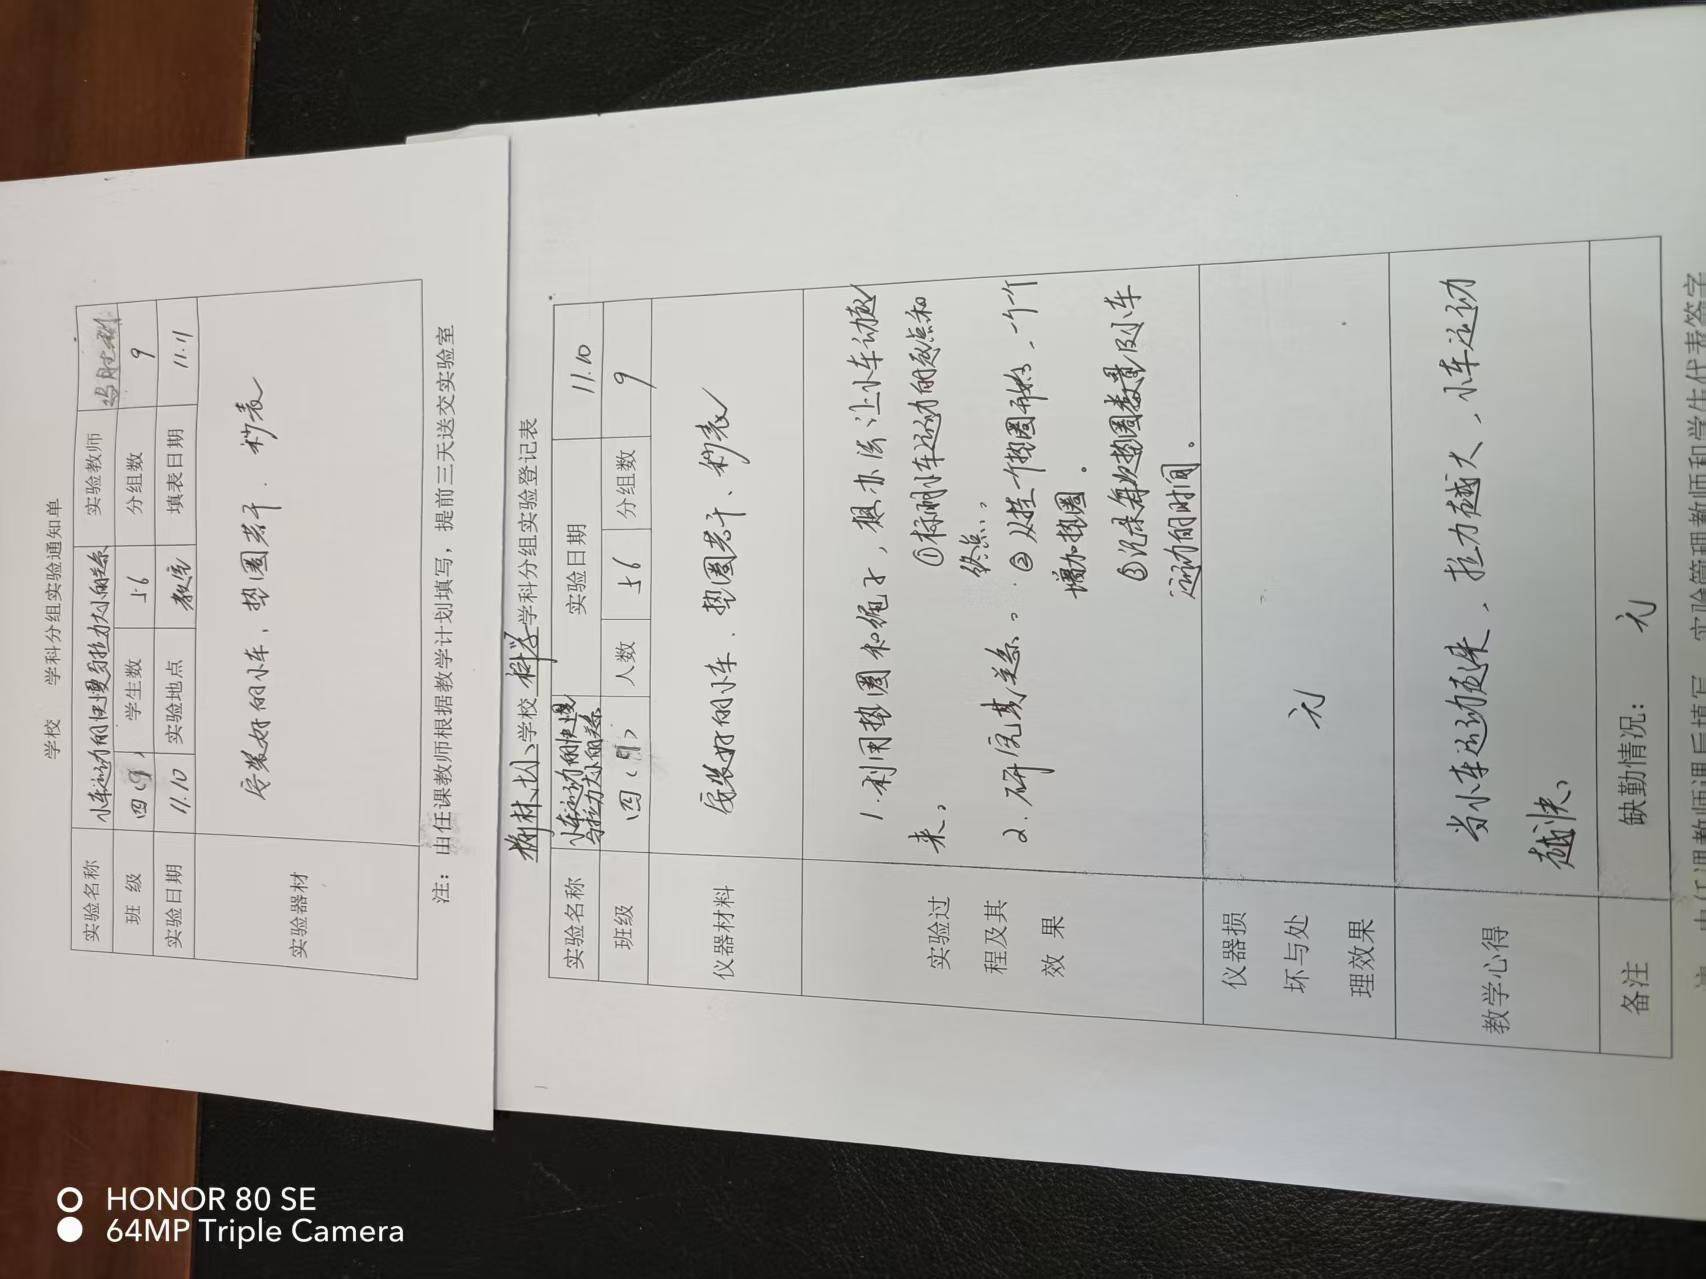 学校 学科分组实验通知单
实验名称 小车运动的快慢与拉力大小的关系 实验教师
班 级 四(9) 学生数 56 分组数 9
实验日期 11.10 实验地点 教室 填表日期 11.11
实验器材 安装好的小车、垫圈若干、秒表
注：由任课教师根据教学计划填写，提前三天送交实验室
学校 科学 学科分组实验登记表
实验名称 小车运动的快慢 实验日期 11.10
与拉力大小的关系
班级 四(9) 人数 56 分组数 9
仪器材料 安装好的小车、垫圈若干、秒表
实验过
程及其
效 果
1.利用垫圈和绳子，想办法让小车动起
来。
①标明小车运动的起点和
终点。
2.研究其关系。
②从挂一个垫圈开始，一个个
增加垫圈。
③记录每次垫圈数量及小车
运动的时间。
仪器损
坏与处
理效果
无
教学心得
当小车运动起来，拉力越大，小车运动
越快。
备注 缺勤情况： 无
注：由任课教师课后填写，实验管理教师和学生代表签字
HONOR 80 SE
64MP Triple Camera